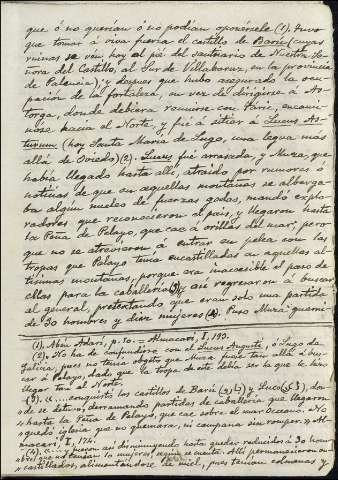 que ó no querían ó no podían oponérsele (1). Tuvo
que tomar á viva fuerza el castillo de Barú (cuyas
ruinas se ven hoy al pié del santuario de Nuestra Se-
ñora del Castillo, al Sur de Villabañez, en la provincia
de Palencia) y despues que hubo asegurado la ocu-
pación de la fortaleza, en vez de dirigirse á As-
torga, donde debiera reunirse con Taric, encami-
nóse hacia el Norte, y fué á sitiar á Lucus As-
turum (hoy Santa María de Lugo, una legua más
allá de Oviedo) (2). Lucus fué arrasada, y Muza, que
había llegado hasta allí, atraido por rumores ó
noticias de que en aquellas montañas se alberga-
ba algún nucleo de fuerzas godas, mandó explo-
radores que reconocieron el país, y llegaron hasta
la Peña de Pelayo, que cae á orillas del mar, pero
que no se atrevieron á entrar en pelea con las
tropas que Pelayo tenía encastilladas en aquellas al-
tísimas montañas, porque era inaccesible el paso de
ellas para la caballería (3) y así regresaron á buscar
al general, pretextando que eran solo una partida
de 30 hombres y diez mujeres (4). Puso Muza guarni-
(1). Abir Adari, p. 10. = Almacari, I, 173.
(2). No ha de confundirse con el Lucus Augusti, ó Lugo de
Galicia, pues no tenía objeto que Muza fuese tan allá á bus-
car á Pelayo, dado que la tropa de este debía ser la que le hizo
llegar tan al Norte.
(3). «....conquistó los castillos de Barú y Luco, don-
de se detuvo, derramando partidas de caballería que llegaron
hasta la Peña de Pelayo, que cae sobre el mar Oceano. No
quedó iglesia que no quemara, ni campana sin romper.» Al-
macari, I, 174.
(4). «... fueron así disminuyendo hasta quedar reducidos á 30 hom-
bres que no tenían 10 mujeres, según se cuenta. Allí permanecieron en-
castillados, alimentándose de miel, pues tenían colmenas y